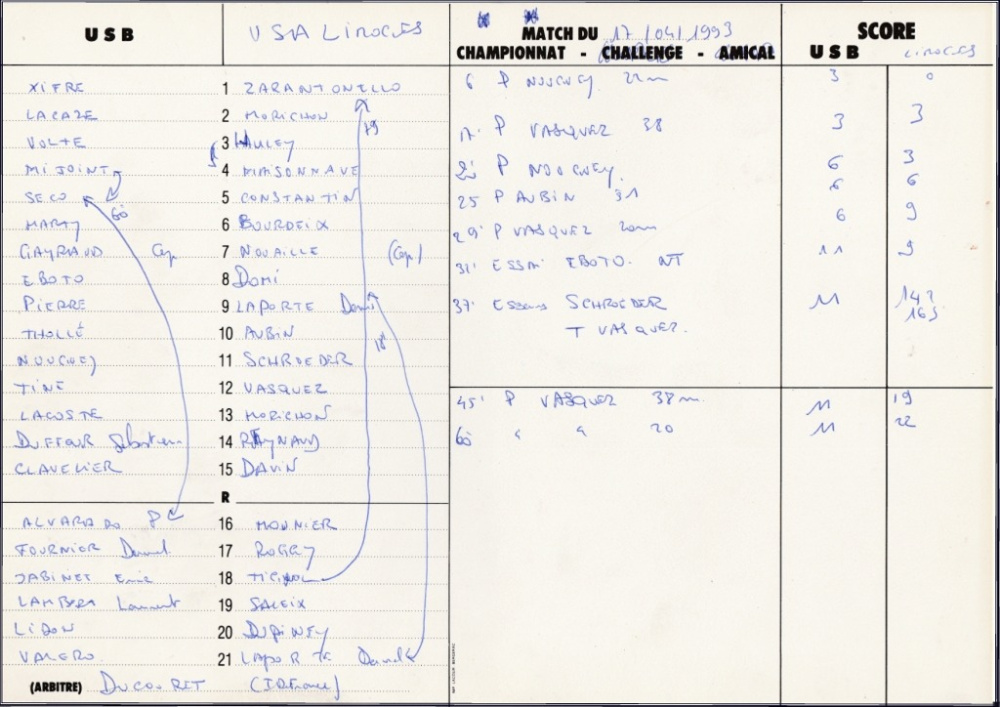 USB USA LIMOGES
MATCH DU 17/04/1993
CHAMPIONNAT - CHALLENGE - AMICAL
SCORE
USB LIMOGES
XIFRE 1 ZARANTONELLO
LACAZE 2 MORICHON
VOLTE 3 HAULEY
MIJOINT 4 MAISONNAVE
SECO 5 CONSTANTIN
60
MARTY 6 BOURDEIX
GAYRAUD Cap 7 NOUAILLE (Cap)
EBOTO 8 DOMI
PIERRE 9 LAPORTE
THOLLÉ 10 AUBIN
NOUCHEY 11 SCHROEDER
TINÉ 12 VASQUEZ
LACOSTE 13 MORICHON
DUFFOUR Sébastien 14 RAYNAUD
CLAVELIER 15 DAVIN
R
ALVARADO P 16 MONNIER
FOURNIER Daniel 17 ROGGY
JABINET Eric 18
LAMBERT Laurent 19 SALEIX
LIDON 20 DUPINEY
VALERO 21 LAPORTE
(ARBITRE) DUCOURET (ID France)
6 P NOUCHEY 22m 3 0
17' P VASQUEZ 38 3 3
P NOUCHEY 6 3
25 P AUBIN 31 6 6
29' P VASQUEZ 20m 6 9
31' ESSAI EBOTO NT 11 9
37' Essai SCHROEDER 11 14
T VASQUEZ 16
45' P VASQUEZ 38m 11 19
60 " " 20 11 22